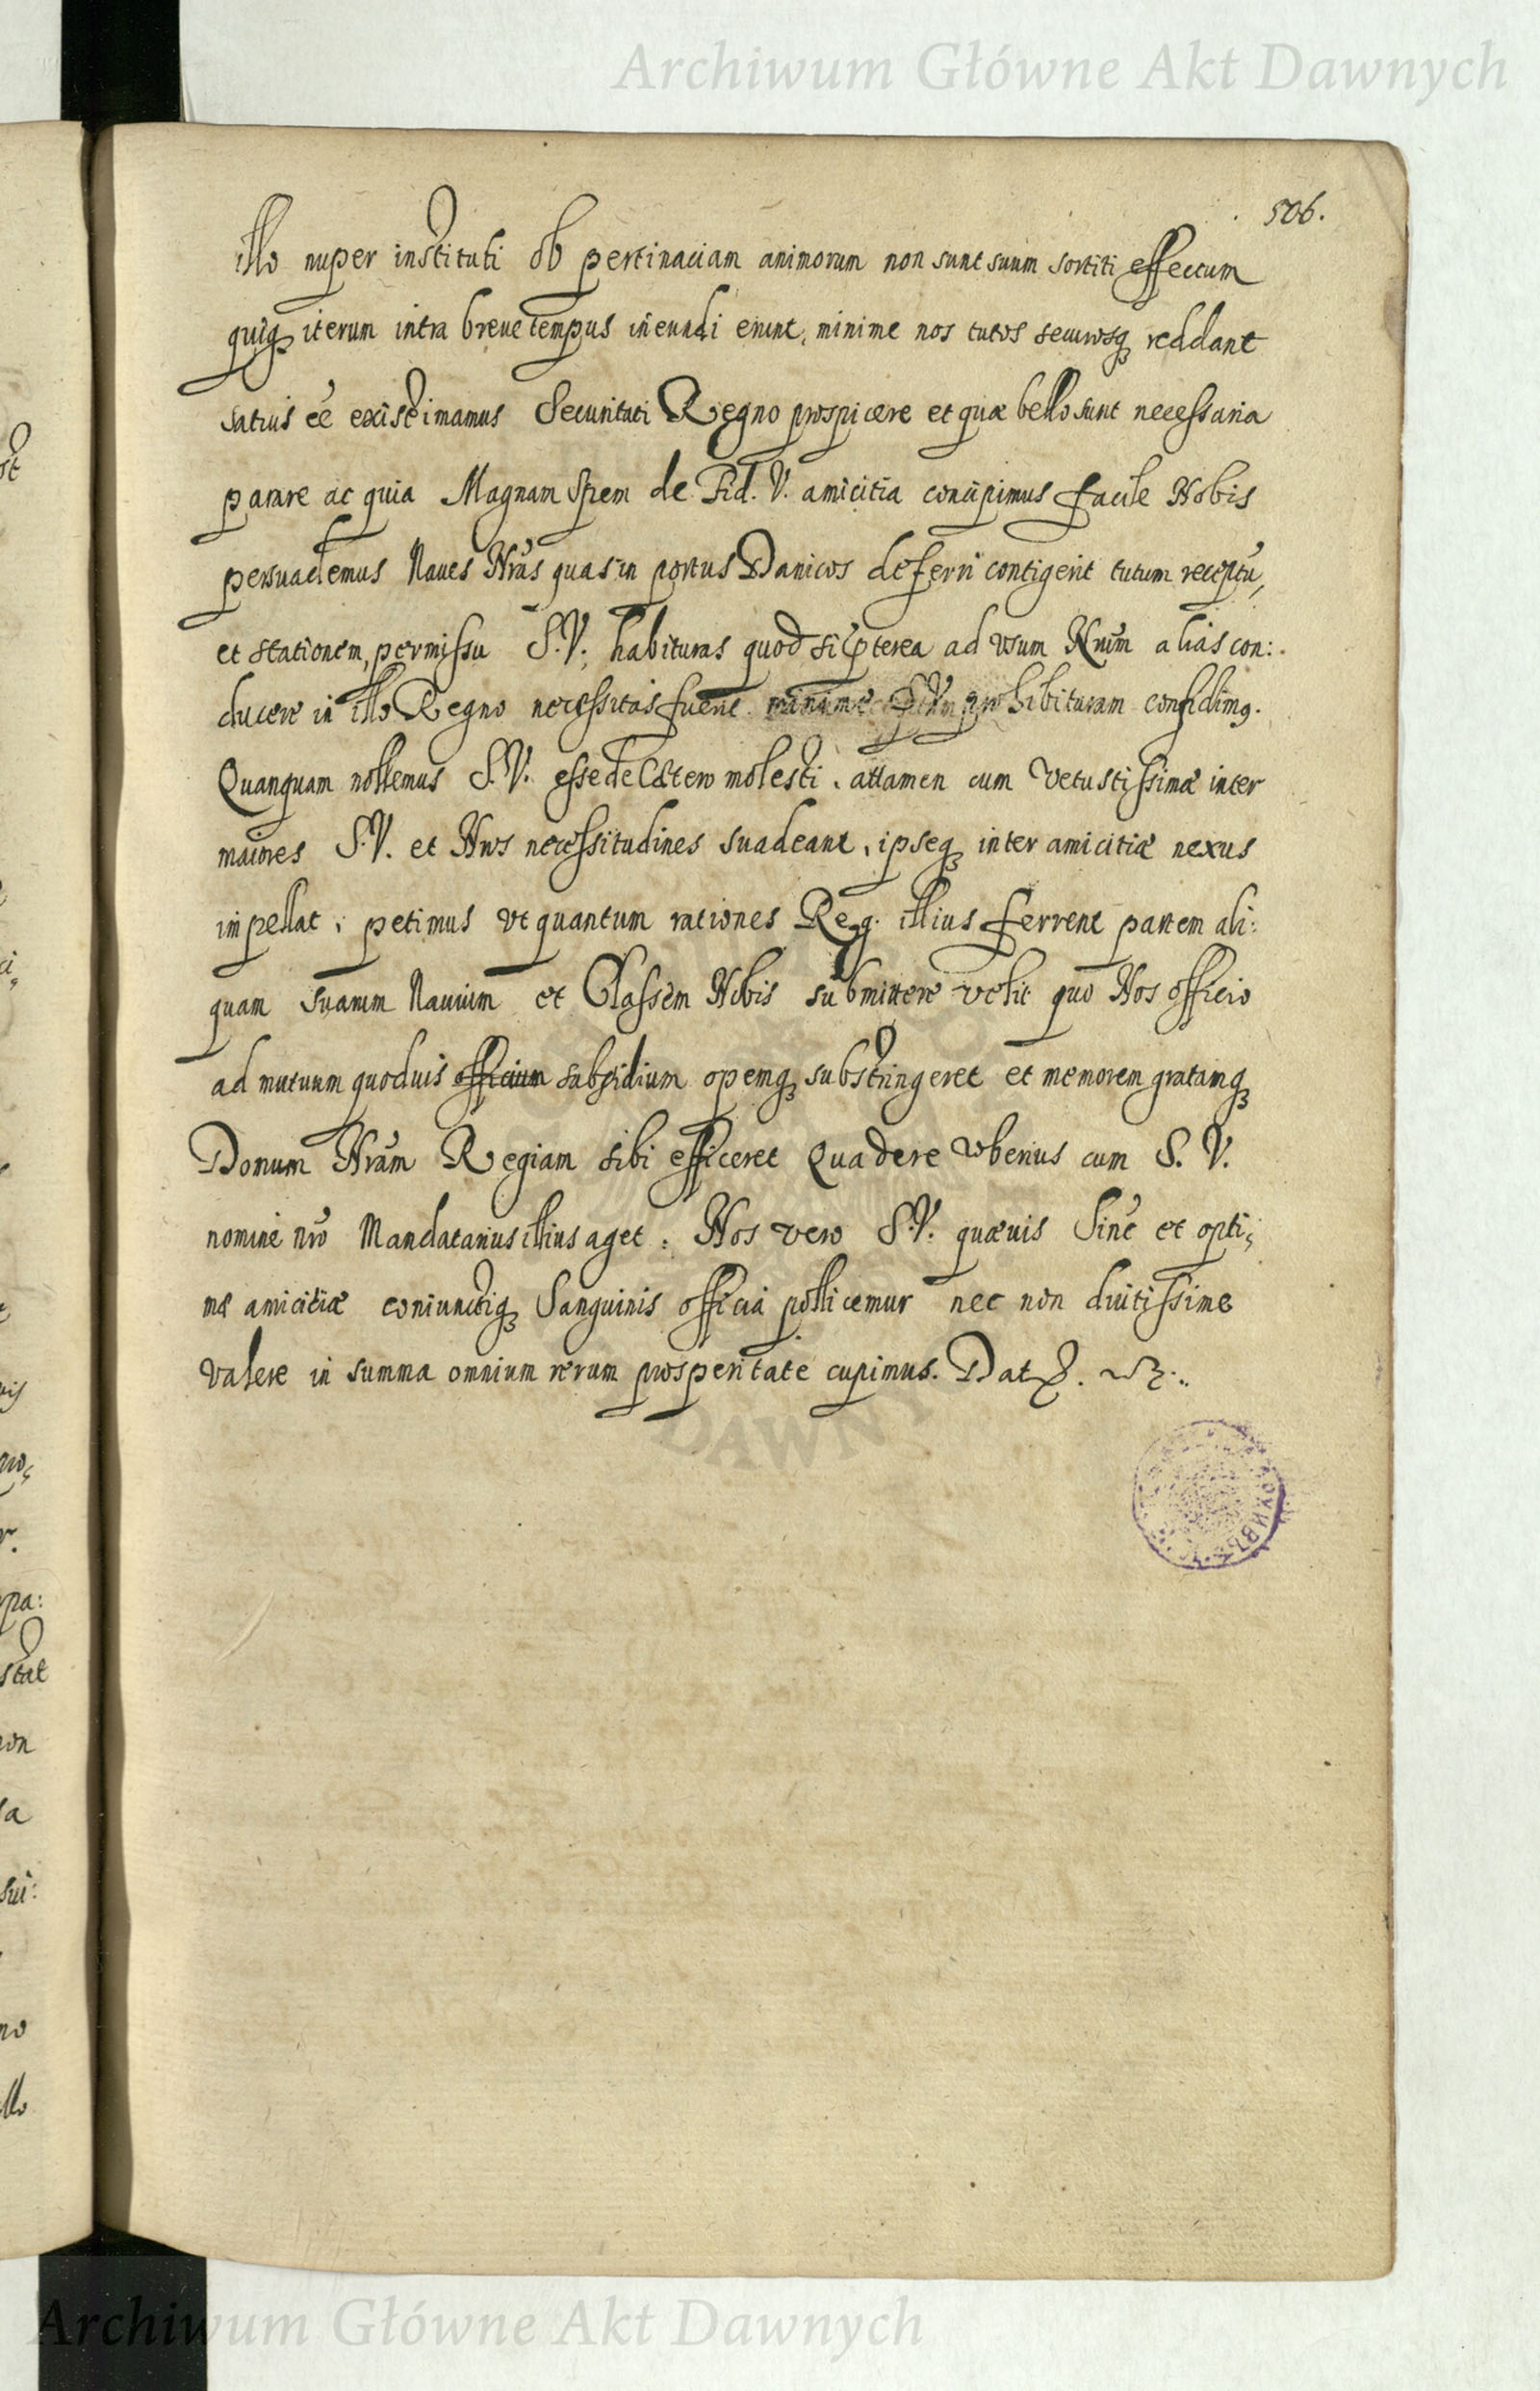 Archiwum Główne Akt Dawnych
506.
illo nuper instituti ob pertinaciam animorum non sunt suum sortiti effectum
quiq; iterum intra breue tempus ineundi erunt, minime nos tutos securosq; reddant
satius eē existimamus Securitati Regno prospicere et quæ bello sunt necessaria
parare ac quia Magnam spem de V. amicitia concipimus facile Nobis
persuademus Naues Nrās quas in portus Danicos deferri contigerit tutum receptū,
et stationem, permissu S.V. habituras quod si pterea ad vsum Nrum alias con:
ducere in illo Regno necessitas fuerit minime S.V. prohibituram confidimq.
Quanquam nollemus S.V. esse de Cætero molesti, attamen cum Vetustissimæ inter
maiores S.V. et Nros necessitudines suadeant, ipseq; inter amicitiæ nexus
impellat, petimus vt quantum rationes Reg. illius ferrent partem ali:
quam suarum Nauium et Classem Nobis submittere velit quo Nos officio
ad mutuum quoduis officium subsidium opemq; substringeret et memorem gratamq;
Domum Nrām Regiam sibi efficeret Qua de re vberius cum S. V.
nomine nrō Mandatarius illius aget. Nos vero S.V. quæuis Sinē et opti,
mæ amicitiæ coniunctiq; Sanguinis officia pollicemur nec non diutissime
valere in summa omnium rerum prosperitate cupimus. Dat
DAWNY
Archiwum Główne Akt Dawnych